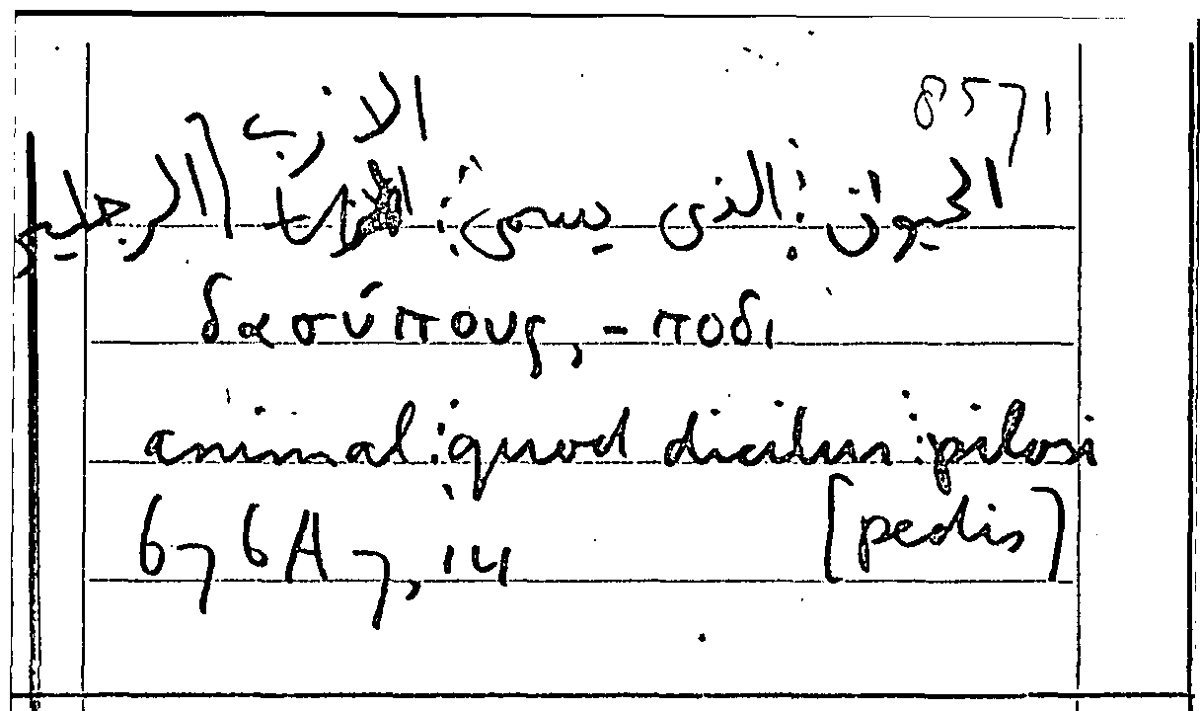 8571
الازب
الحيوان : الذى يسمى : [الرجلين
δασύπους, -ποδι
animal : quod dicitur : pilosi
[pedis]
676A7, 14